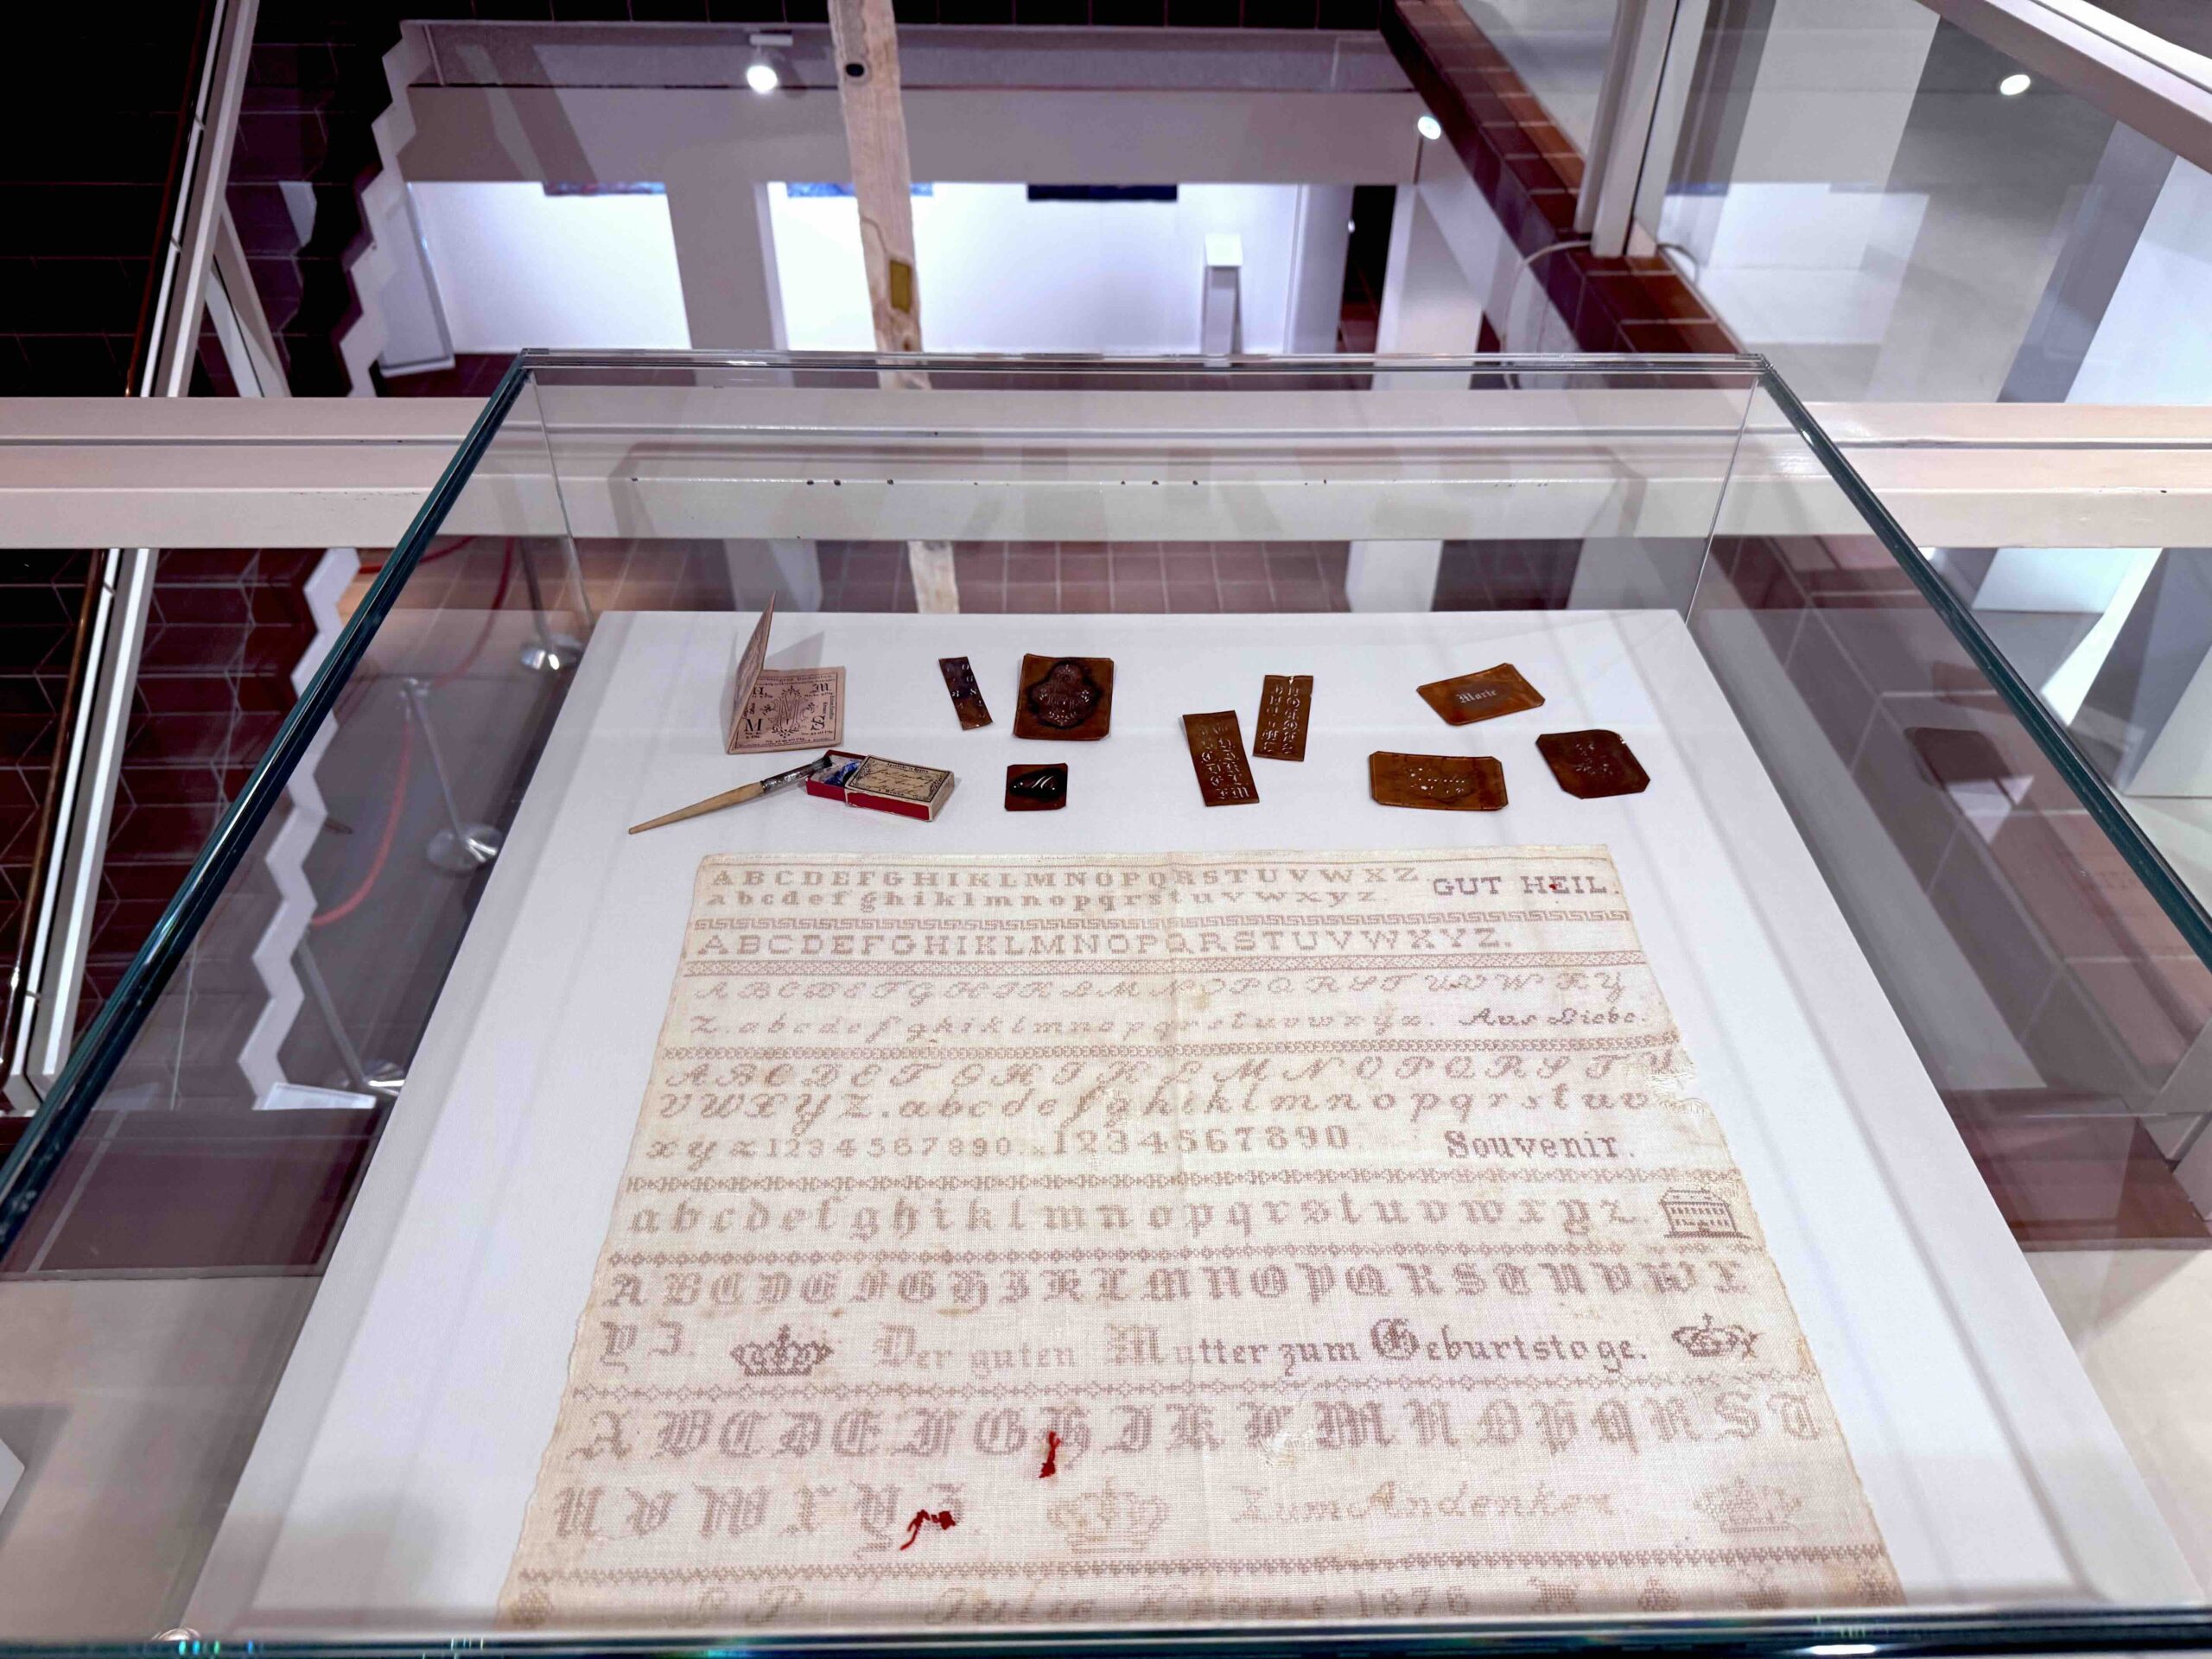 M
M
Marie
A B C D E F G H I K L M N O P Q R S T U V W X Z
GUT HEIL.
a b c d e f g h i k l m n o p q r s t u v w x y z.
A B C D E F G H I K L M N O P Q R S T U V W X Y Z.
A B C D E F G H I K L M N O P Q R S T U V W X Y
Z. a b c d e f g h i k l m n o p q r s t u v w x y z. Aus Liebe.
A B C D E F G H I K L M N O P Q R S T U
V W X Y Z. a b c d e f g h i k l m n o p q r s t u v
x y z 1 2 3 4 5 6 7 8 9 0. 1 2 3 4 5 6 7 8 9 0. Souvenir.
a b c d e f g h i k l m n o p q r s t u v w x y z.
A B C D E F G H I K L M N O P Q R S T U V W X
Y Z. Der guten Mutter zum Geburtstage.
A B C D E F G H I K L M N O P Q R S T
U V W X Y Z. Zum Andenken
1876